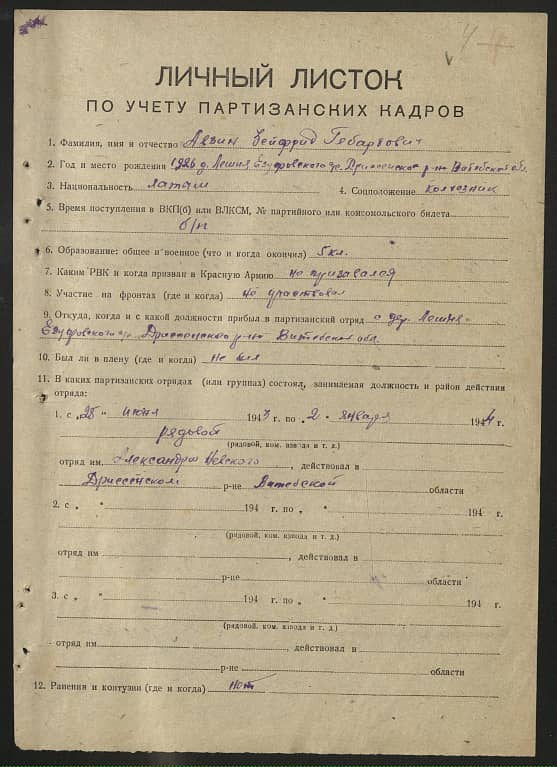 4
ЛИЧНЫЙ ЛИСТОК
ПО УЧЕТУ ПАРТИЗАНСКИХ КАДРОВ
1. Фамилия, имя и отчество Лезин Зейфрид Гебартович
2. Год и место рождения 1926 д. Лешня Езуфовского Дриссенского р-на Витебской обл.
3. Национальность латыш 4. Соцположение колхозник
5. Время поступления в ВКП(б) или ВЛКСМ, № партийного или комсомольского билета
б/п
6. Образование: общее и военное (что и когда окончил) 5 кл.
7. Каким РВК и когда призван в Красную Армию не призывался
8. Участие на фронтах (где и когда) не участвовал
9. Откуда, когда и с какой должности прибыл в партизанский отряд с дер. Лешня
Езуфовского Дриссенского р-на Витебской обл.
10. Был ли в плену (где и когда) не был
11. В каких партизанских отрядах (или группах) состоял, занимаемая должность и район действия
отряда:
1. с „25" июня 1943 г. по „2" января 1944 г.
рядовой
(рядовой, ком. взвода и т. д.)
отряд им. Александра Невского, действовал в
Дриссенском р-не Витебской области
2. с „ " 194 г. по „ " 194 г.
(рядовой, ком. взвода и т. д.)
отряд им , действовал в
р-не области
3. с „ " 194 г. по „ " 194 г.
(рядовой, ком. взвода и т. д.)
отряд им. , действовал в
р-не области
12. Ранения и контузии (где и когда) нет